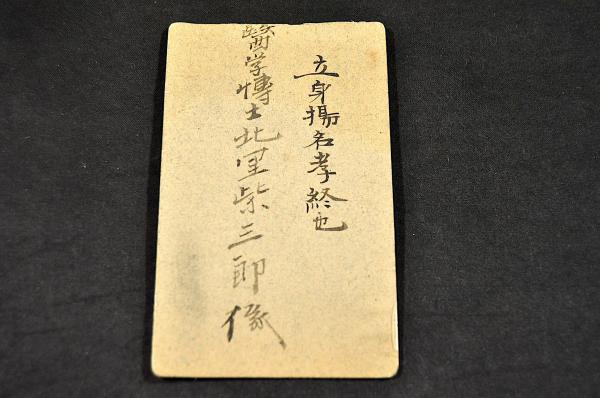 立身揚名孝終也
醫学博士北里柴三郎像